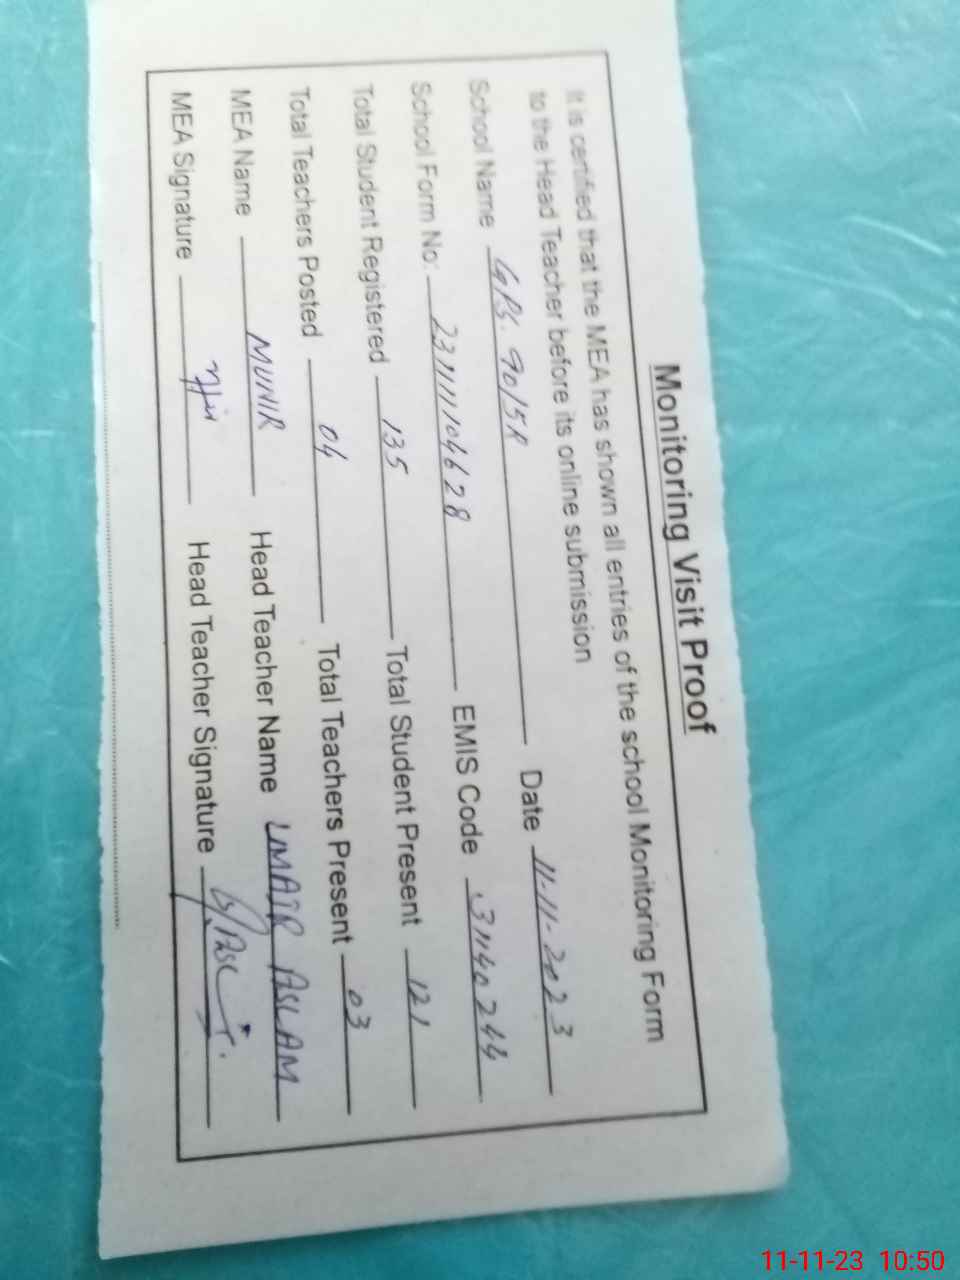 Monitoring Visit Proof
It is certified that the MEA has shown all entries of the school Monitoring Form
to the Head Teacher before its online submission
School Name GPS. 90/5R Date 11-11-2023
School Form No: 231111104628 EMIS Code 31140244
Total Student Registered 135 Total Student Present 121
Total Teachers Posted 04 Total Teachers Present 03
MEA Name MUNIR Head Teacher Name UMAIR ASLAM
MEA Signature Head Teacher Signature
11-11-23 10:50